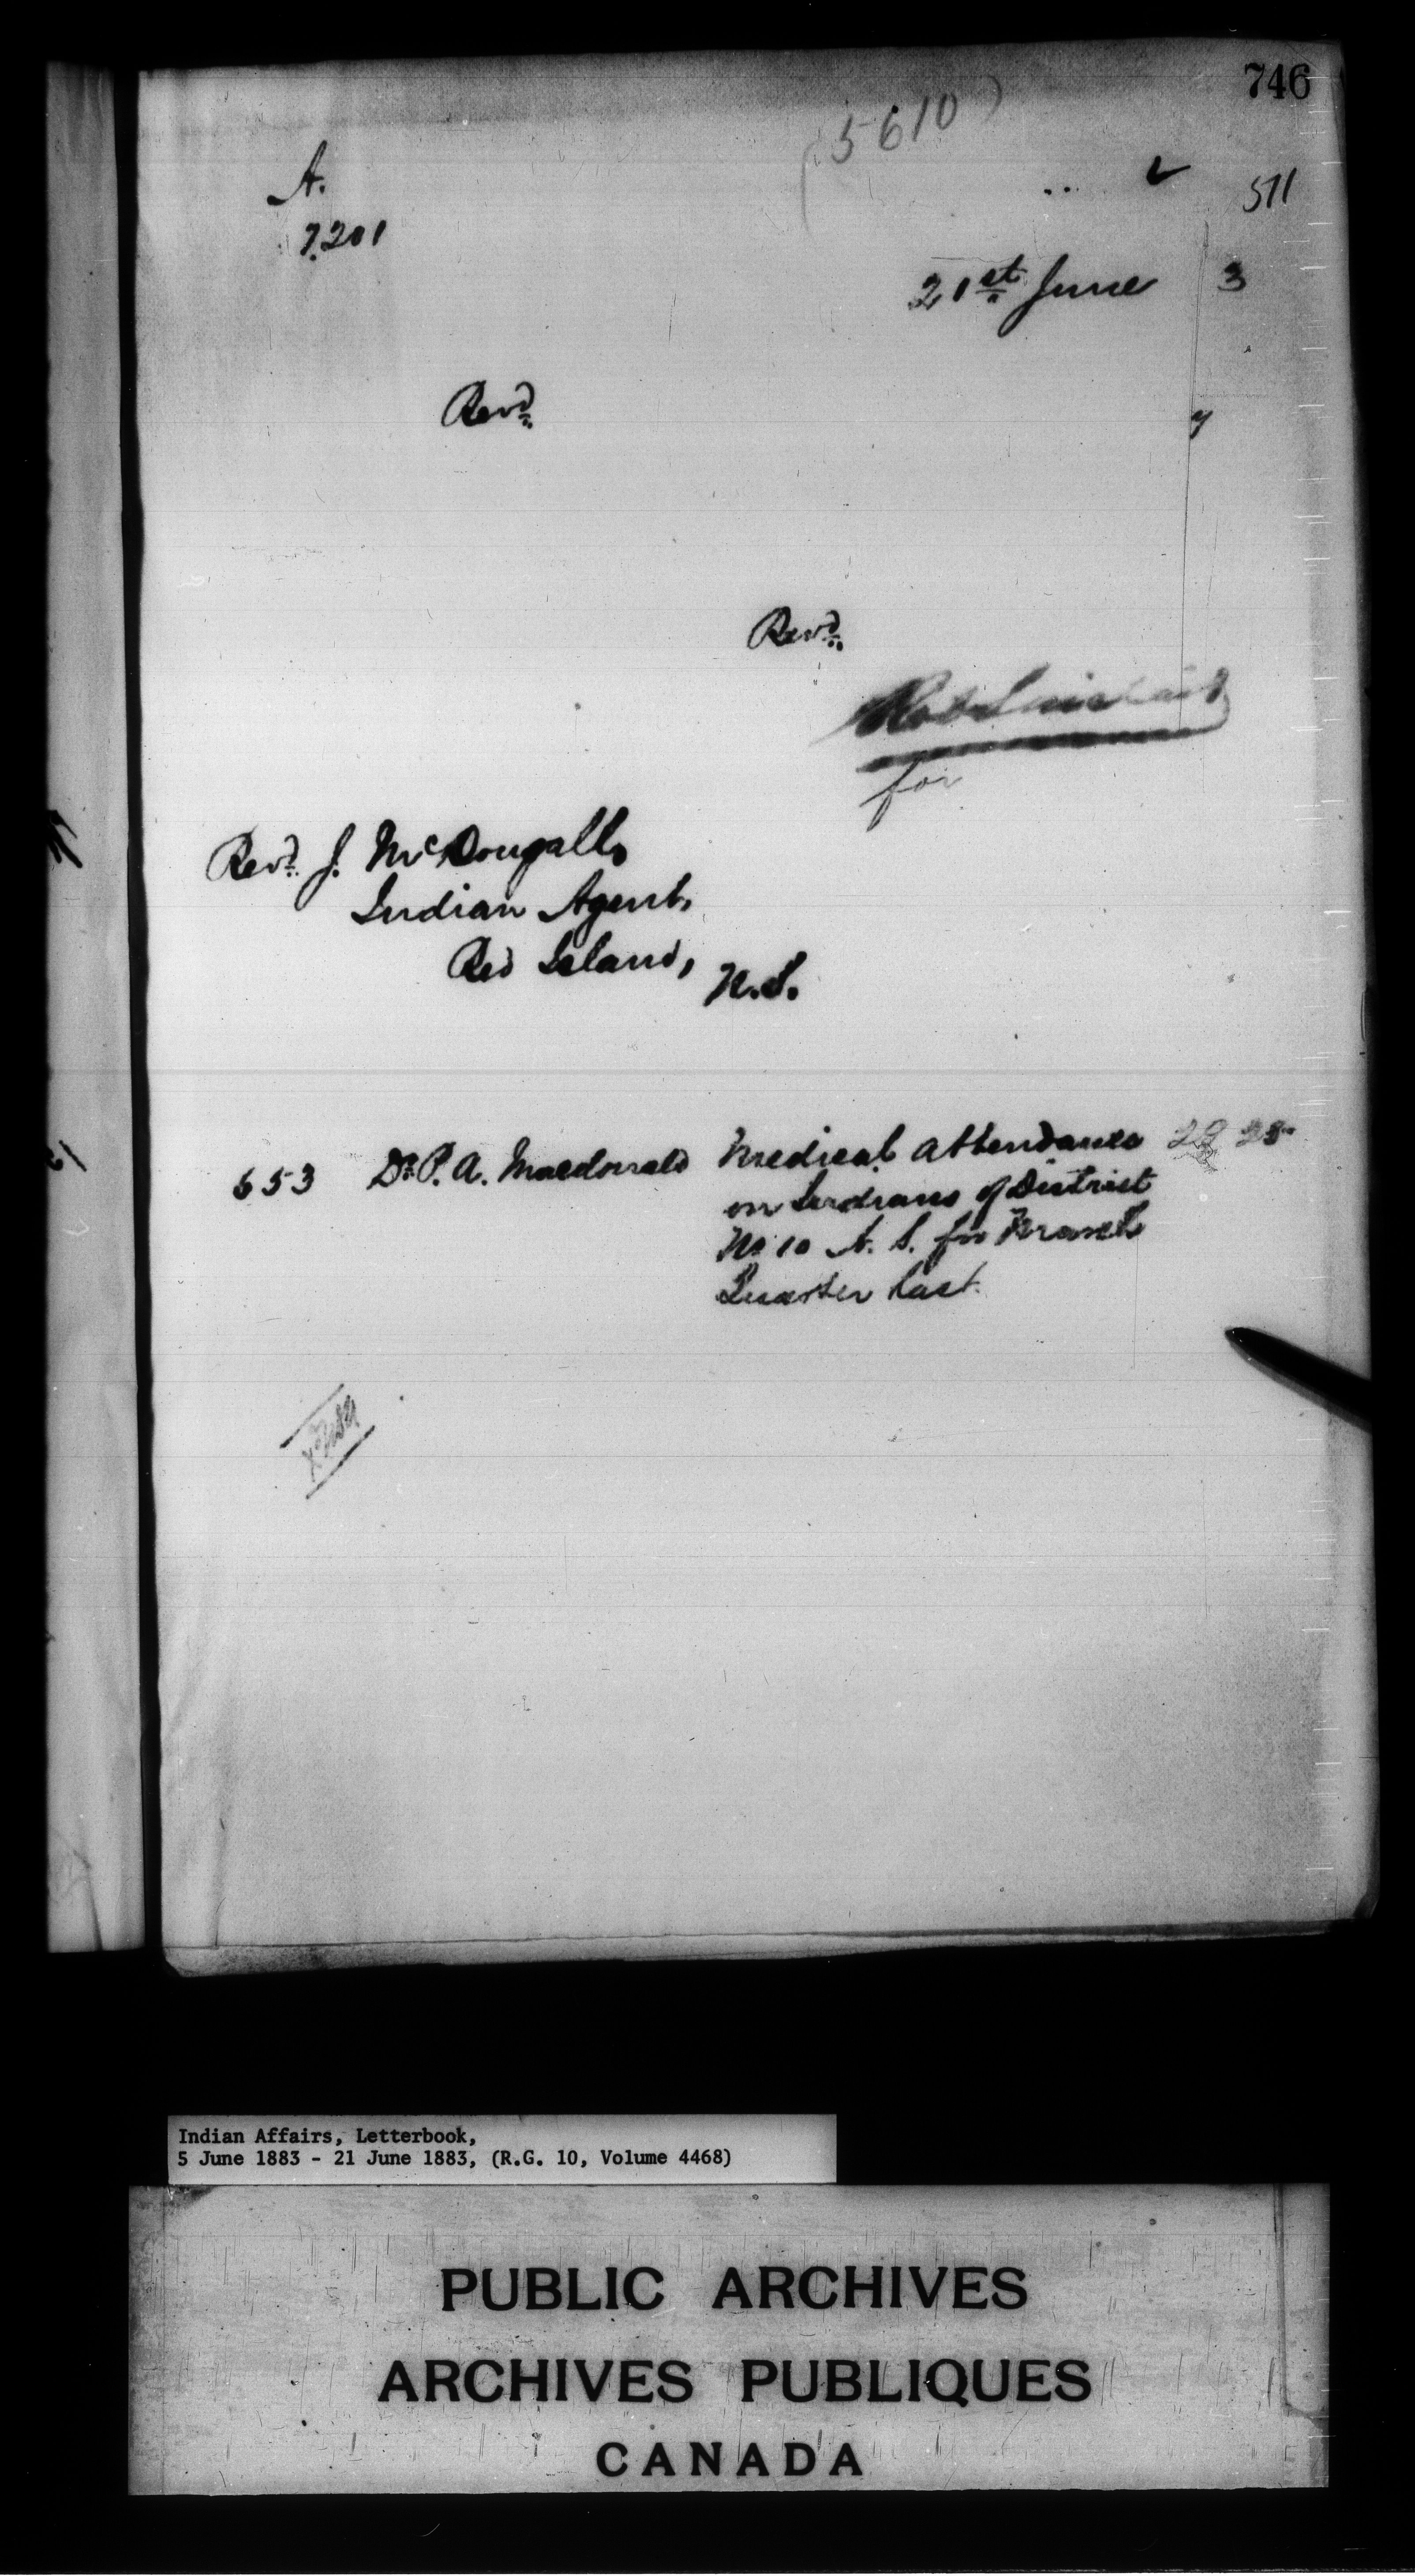 746
5610
A.
511
7.201
21st June 3
Revd.
y
Revd.
Rob Sinclair
for
Revd. J. McDougall,
Indian Agent,
Red Island, N.S.
653 Dr. P. A. Macdonald Medical attendance 29 25
on Indians of District
No 10 N. S. for March
Quarter last.
Indian Affairs, Letterbook,
5 June 1883 - 21 June 1883, (R.G. 10, Volume 4468)
PUBLIC ARCHIVES
ARCHIVES PUBLIQUES
CANADA